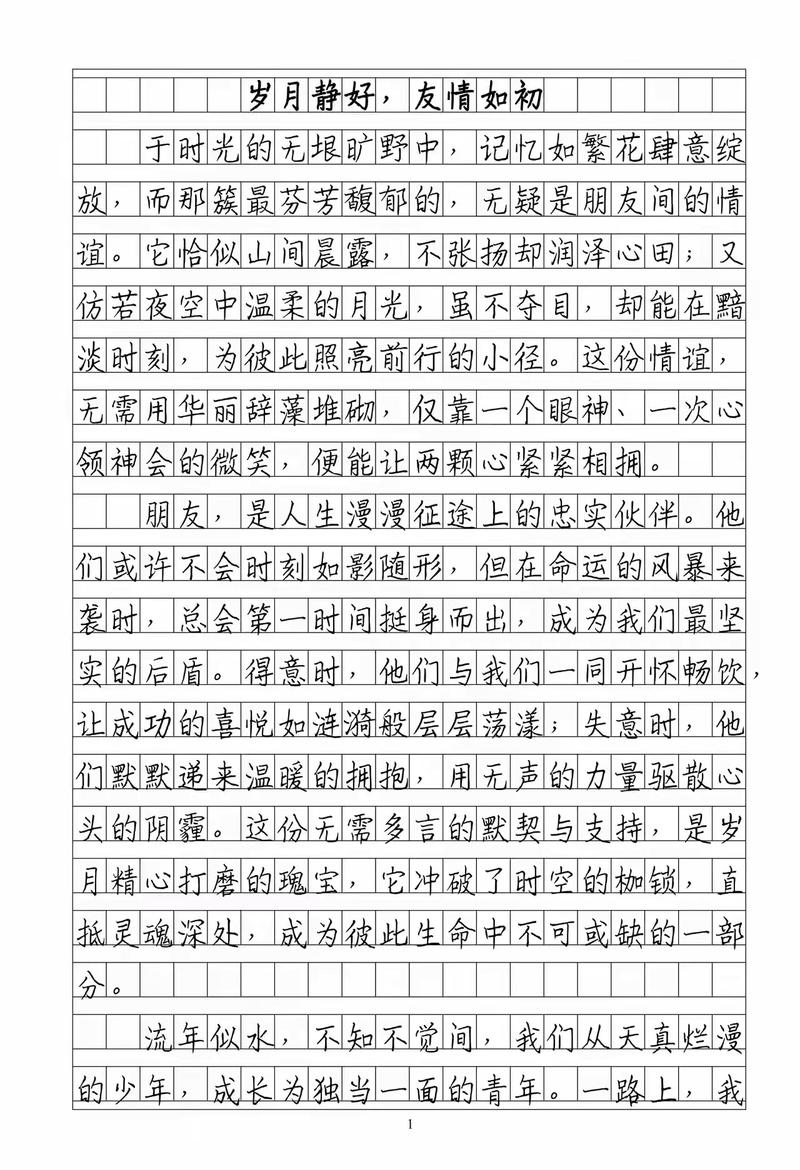 岁月静好，友情如初
于时光的无垠旷野中，记忆如繁花肆意绽
放，而那簇最芬芳馥郁的，无疑是朋友间的情
谊。它恰似山间晨露，不张扬却润泽心田；又
仿若夜空中温柔的月光，虽不夺目，却能在黯
淡时刻，为彼此照亮前行的小径。这份情谊，
无需用华丽辞藻堆砌，仅靠一个眼神、一次心
领神会的微笑，便能让两颗心紧紧相拥。
朋友，是人生漫漫征途上的忠实伙伴。他
们或许不会时刻如影随形，但在命运的风暴来
袭时，总会第一时间挺身而出，成为我们最坚
实的后盾。得意时，他们与我们一同开怀畅饮，
让成功的喜悦如涟漪般层层荡漾；失意时，他
们默默递来温暖的拥抱，用无声的力量驱散心
头的阴霾。这份无需多言的默契与支持，是岁
月精心打磨的瑰宝，它冲破了时空的枷锁，直
抵灵魂深处，成为彼此生命中不可或缺的一部
分。
流年似水，不知不觉间，我们从天真烂漫
的少年，成长为独当一面的青年。一路上，我
1